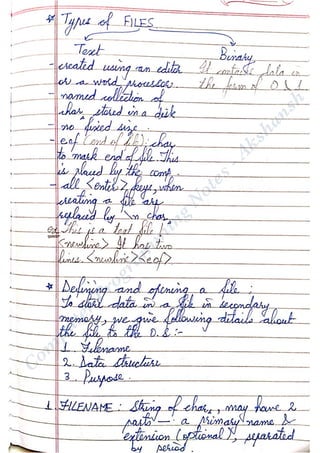 * Types of FILES
Text Binary
- created using an editor It contains data in
or a word processor. the form of 0 & 1
- named collection of
char stored in a disk
- no fixed size.
- eof (end of file): char
to mark end of file. This
is placed by the comp.
- all <enter> keys, when
creating a file are
replaced by \n char.
eg. This is a text file!
<newline> It has two
lines. <newline> <eof>
* Defining and opening a file:
To store data in a file in secondary
memory, we give following details about
the file to the O.S :-
1. Filename
2. Data Structure
3. Purpose.
1. FILENAME: String of char, may have 2
parts — a primary name &
extension (optional), separated
by period.
Programming Notes - Akshansh